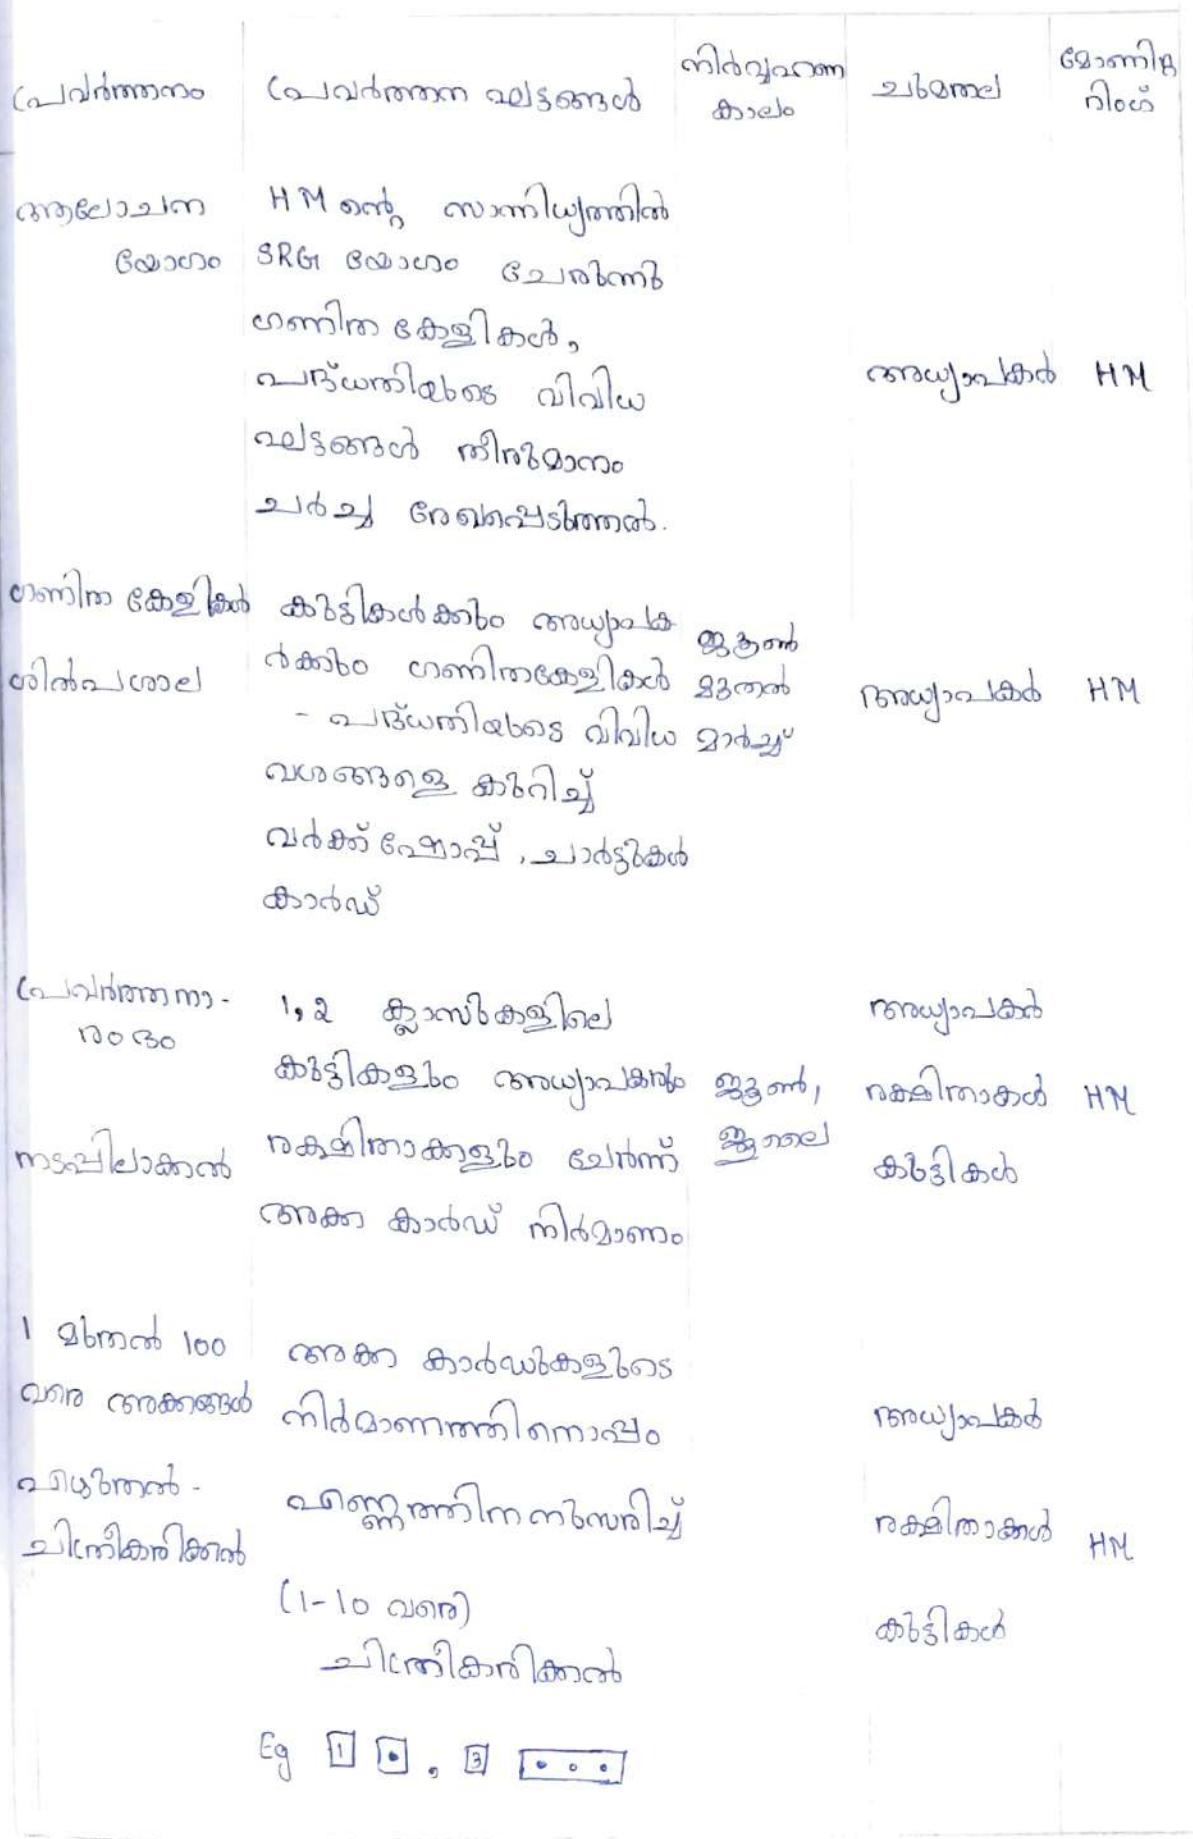 പ്രവർത്തനം
പ്രവർത്തന ഘട്ടങ്ങൾ
നിർവ്വഹണ
കാലം
ചുമതല
മോണിറ്റ
റിംഗ്
ആലോചന
യോഗം
HM ന്റെ സാന്നിധ്യത്തിൽ
SRG യോഗം ചേരുന്നു
ഗണിത കേളികൾ,
പദ്ധതിയുടെ വിവിധ
ഘട്ടങ്ങൾ തീരുമാനം
ചർച്ച രേഖപ്പെടുത്തൽ.
അധ്യാപകർ
HM
ഗണിത കേളികൾ
ശിൽപശാല
കുട്ടികൾക്കും അധ്യാപക
ർക്കും ഗണിതകേളികൾ
- പദ്ധതിയുടെ വിവിധ
വശങ്ങളെ കുറിച്ച്
വർക്ക്ഷോപ്പ്, ചാർട്ടുകൾ
കാർഡ്
ജൂൺ
മുതൽ
മാർച്ച്
അധ്യാപകർ
HM
പ്രവർത്തനാ-
രംഭം
നടപ്പിലാക്കൽ
1, 2 ക്ലാസുകളിലെ
കുട്ടികളും അധ്യാപകരും
രക്ഷിതാക്കളും ചേർന്ന്
അക്ക കാർഡ് നിർമാണം
ജൂൺ,
ജൂലൈ
അധ്യാപകർ
രക്ഷിതാകൾ
കുട്ടികൾ
HM
1 മുതൽ 100
വരെ അക്കങ്ങൾ
എഴുതൽ -
ചിത്രീകരിക്കൽ
അക്ക കാർഡുകളുടെ
നിർമാണത്തിനൊപ്പം
എണ്ണത്തിനനുസരിച്ച്
(1-10 വരെ)
ചിത്രീകരിക്കൽ
Eg 1 , 3
അധ്യാപകർ
രക്ഷിതാക്കൾ
കുട്ടികൾ
HM